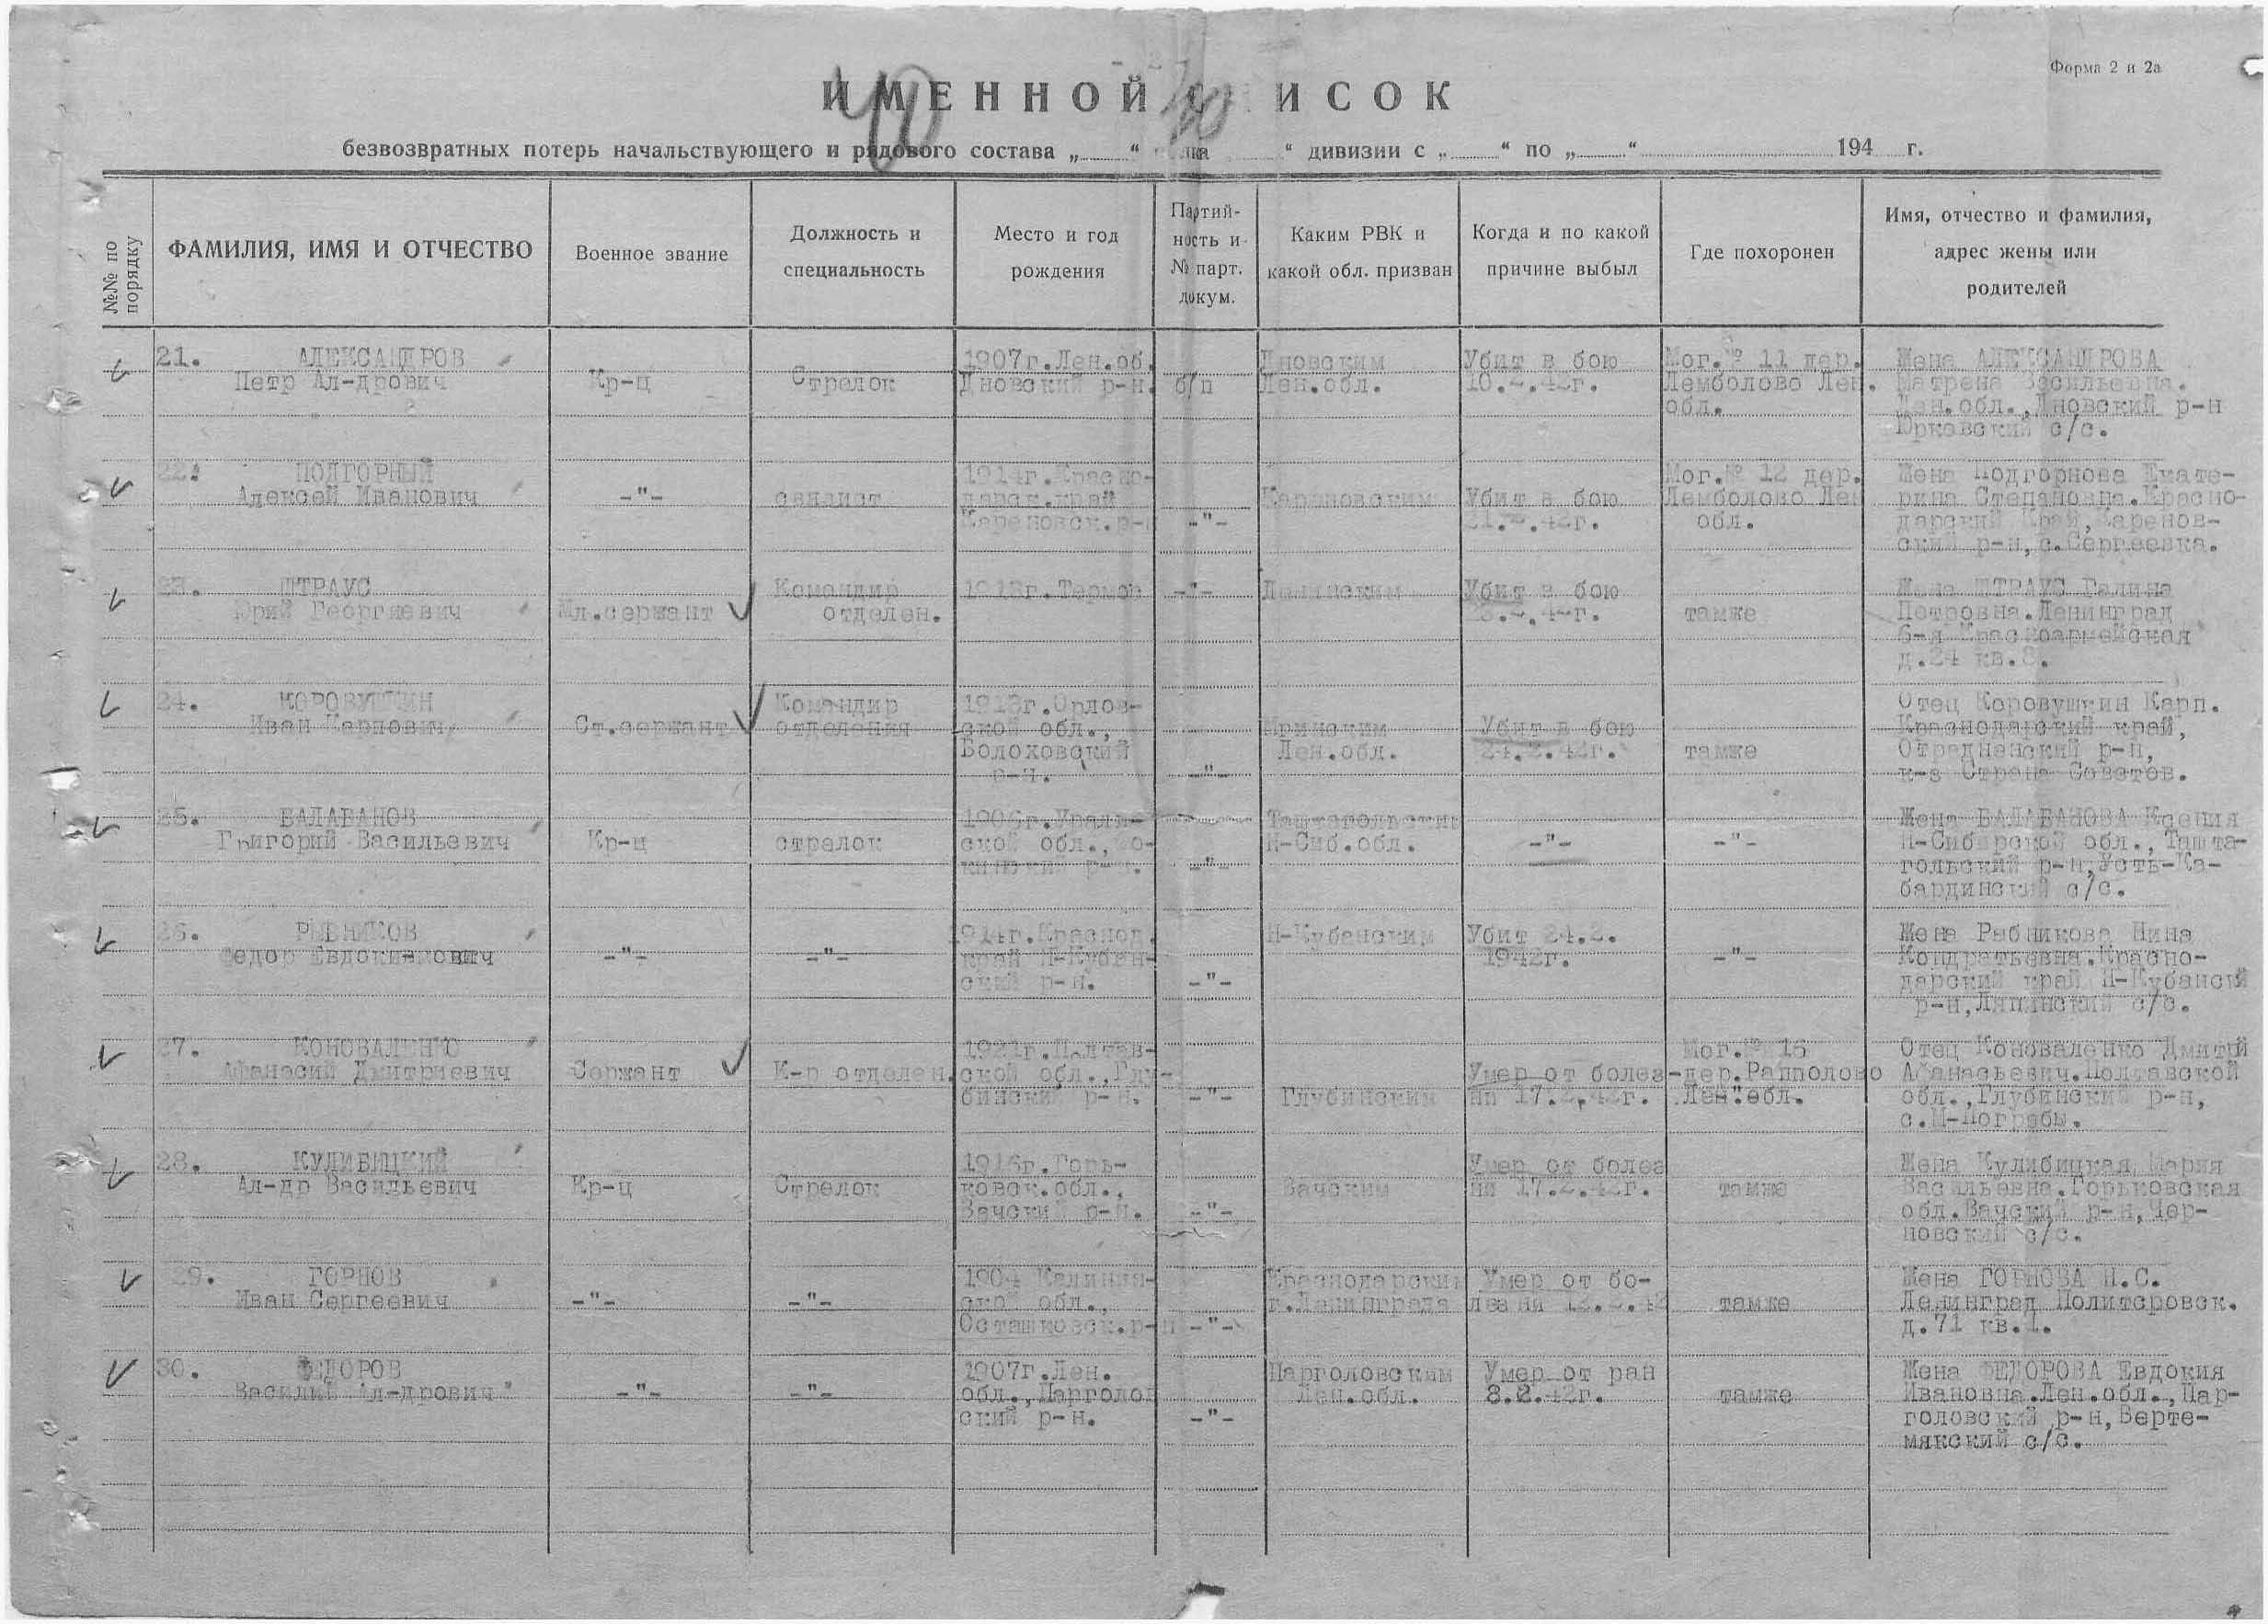 Форма 2 и 2а
ИМЕННОЙ С ИСОК
40
безвозвратных потерь начальствующего и рядового состава „ “ полка “ дивизии с „ “ по „ “ 194 г.
№№ по порядку
ФАМИЛИЯ, ИМЯ И ОТЧЕСТВО
Военное звание
Должность и
специальность
Место и год
рождения
Партий-
ность и
№ парт.
докум.
Каким РВК и
какой обл. призван
Когда и по какой
причине выбыл
Где похоронен
Имя, отчество и фамилия,
адрес жены или
родителей
21. АЛЕКСАНДРОВ
Петр Ал-дрович
Кр-ц
Стрелок
1907г.Лен.об.
Дновский р-н.
б/п
Дновским
Лен.обл.
Убит в бою
10.2.42г.
Мог.№ 11 дер.
Лемболово Лен.
обл.
Жена АЛЕКСАНДРОВА
Матрена Васильевна.
Лен.обл.,Дновский р-н
Юрковский с/с.
22. ПОДГОРНЫЙ
Алексей Иванович
-"-
связист
1914г.Красно-
дарск.край
Кареновск.р-н
-"-
Кареновским
Убит в бою
21.2.42г.
Мог.№ 12 дер.
Лемболово Лен
обл.
Жена Подгорнова Екате-
рина Степановна.Красно-
дарский Край,Каренов-
ский р-н,с.Сергеевка.
23. ШТРАУС
Юрий Георгиевич
Мл.сержант
Командир
отделен.
1913г.Термоз
-"-
Ленинским
Убит в бою
.2.42г.
тамже
Жена ШТРАУС Галина
Петровна.Ленинград
6-я Красноармейская
д.24 кв.8.
24. КОРОВУШКИН
Иван Карпович
Ст.сержант
Командир
отделения
1913г.Орлов-
ской обл.,
Волоховский
р-н.
-"-
Мринским
Лен.обл.
Убит в бою
24.2.42г.
тамже
Отец Коровушкин Карп.
Краснодарский край,
Отрадненский р-н,
к-з Страна Советов.
25. БАЛАБАНОВ
Григорий Васильевич
Кр-ц
стрелок
1906г.Ураль-
ской обл.,
р-н.
-"-
Таштагольским
Н-Сиб.обл.
-"-
-"-
Жена БАЛАБАНОВА Ксения
Н-Сибирской обл.,Ташта-
гольский р-н,Усть-Ка-
бардинский с/с.
26. РЫБНИКОВ
Федор Евдокимович
-"-
-"-
1914г.Краснод.
край Н-Кубан-
ский р-н.
-"-
Н-Кубанским
Убит 24.2.
1942г.
-"-
Жена Рабникова Нина
Кондратьевна.Красно-
дарский край Н-Кубанский
р-н,Ляпинский с/с.
27. КОНОВАЛЕНКО
Афанасий Дмитриевич
Сержант
К-р отделен.
1921г.Полтав-
ской обл.,Глу-
бинский р-н.
-"-
Глубинским
Умер от болез-
ни 17.2.42г.
Мог.№ 16
дер.Рапполово
Лен.обл.
Отец Коноваленко Дмитрий
Афанасьевич.Полтавской
обл.,Глубинский р-н,
с.М-Погребы.
28. КУЛИБИЦКИЙ
Ал-др Васильевич
Кр-ц
Стрелок
1916г.Горь-
ковск.обл.,
Вачский р-н.
-"-
Вачским
Умер от болез
ни 17.2.42г.
тамже
Жена Кулибицкая Мария
Васильевна.Горьковская
обл.Вачский р-н,Чер-
новский с/с.
29. ГОРНОВ
Иван Сергеевич
-"-
-"-
1904 Калинин-
ской обл.,
Осташковск.р-н
-"-
Краснодарским
г.Ленинграда
Умер от бо-
лезни 12.2.42
тамже
Жена ГОРНОВА Н.С.
Ленинград Политеровск.
д.71 кв.1.
30. ФЕДОРОВ
Василий Ал-дрович
-"-
-"-
1907г.Лен.
обл.,Парголов
ский р-н.
-"-
Парголовским
Лен.обл.
Умер от ран
8.2.42г.
тамже
Жена ФЕДОРОВА Евдокия
Ивановна.Лен.обл.,Пар-
головский р-н,Верте-
мякский с/с.